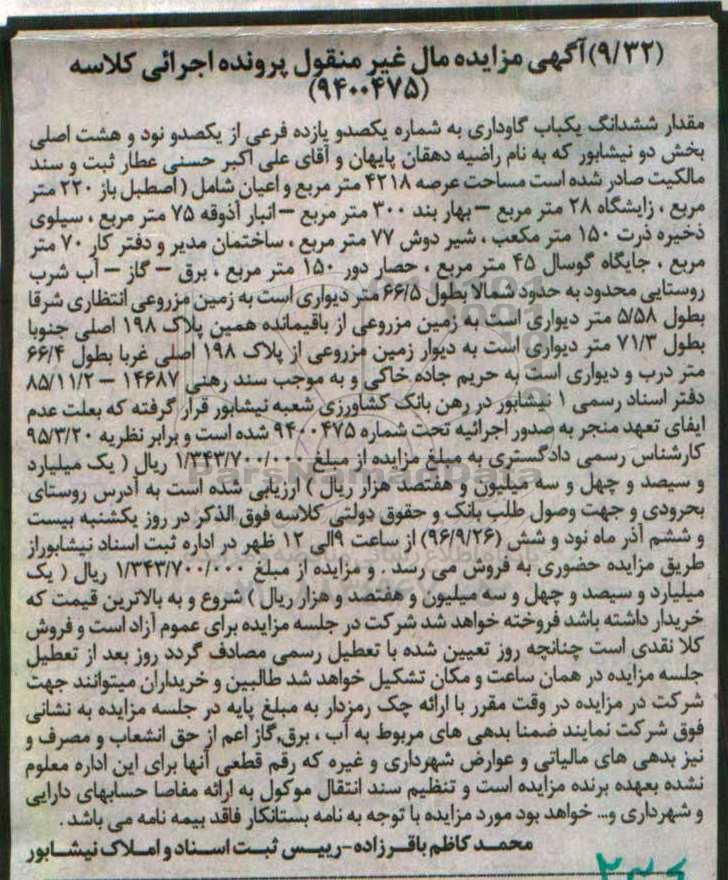 (۹/۳۲)آگهی مزایده مال غیر منقول پرونده اجرائی کلاسه
(۹۴۰۰۴۷۵)
مقدار ششدانگ یکباب گاوداری به شماره یکصدو یازده فرعی از یکصدو نود و هشت اصلی
بخش دو نیشابور که به نام راضیه دهقان پایهان و آقای علی اکبر حسنی عطار ثبت و سند
مالکیت صادر شده است مساحت عرصه ۴۲۱۸ متر مربع و اعیان شامل ( اصطبل باز ۲۲۰ متر
مربع ، زایشگاه ۲۸ متر مربع – بهار بند ۳۰۰ متر مربع – انبار آذوقه ۷۵ متر مربع ، سیلوی
ذخیره ذرت ۱۵۰ متر مکعب ، شیر دوش ۷۷ متر مربع ، ساختمان مدیر و دفتر کار ۷۰ متر
مربع ، جایگاه گوسال ۴۵ متر مربع ، حصار دور ۱۵۰ متر مربع ، برق – گاز – آب شرب
روستایی محدود به حدود شمالا بطول ۶۶/۵ متر دیواری است به زمین مزروعی انتظاری شرقا
بطول ۵/۵۸ متر دیواری است به زمین مزروعی از باقیمانده همین پلاک ۱۹۸ اصلی جنوبا
بطول ۷۱/۳ متر دیواری است به دیوار زمین مزروعی از پلاک ۱۹۸ اصلی غربا بطول ۶۶/۴
متر درب و دیواری است به حریم جاده خاکی و به موجب سند رهنی ۱۴۶۸۷ – ۸۵/۱۱/۲
دفتر اسناد رسمی ۱ نیشابور در رهن بانک کشاورزی شعبه نیشابور قرار گرفته که بعلت عدم
ایفای تعهد منجر به صدور اجرائیه تحت شماره ۹۴۰۰۴۷۵ شده است و برابر نظریه ۹۵/۳/۲۰
کارشناس رسمی دادگستری به مبلغ مزایده از مبلغ ۱/۳۴۳/۷۰۰/۰۰۰ ریال ( یک میلیارد
و سیصد و چهل و سه میلیون و هفتصد هزار ریال ) ارزیابی شده است به آدرس روستای
بحرودی و جهت وصول طلب بانک و حقوق دولتی کلاسه فوق الذکر در روز یکشنبه بیست
و ششم آذر ماه نود و شش (۹۶/۹/۲۶) از ساعت ۹الی ۱۲ ظهر در اداره ثبت اسناد نیشابوراز
طریق مزایده حضوری به فروش می رسد . و مزایده از مبلغ ۱/۳۴۳/۷۰۰/۰۰۰ ریال ( یک
میلیارد و سیصد و چهل و سه میلیون و هفتصد و هزار ریال ) شروع و به بالاترین قیمت که
خریدار داشته باشد فروخته خواهد شد شرکت در جلسه مزایده برای عموم آزاد است و فروش
کلا نقدی است چنانچه روز تعیین شده با تعطیل رسمی مصادف گردد روز بعد از تعطیل
جلسه مزایده در همان ساعت و مکان تشکیل خواهد شد طالبین و خریداران میتوانند جهت
شرکت در مزایده در وقت مقرر با ارائه چک رمزدار به مبلغ پایه در جلسه مزایده به نشانی
فوق شرکت نمایند ضمنا بدهی های مربوط به آب ، برق،گاز اعم از حق انشعاب و مصرف و
نیز بدهی های مالیاتی و عوارض شهرداری و غیره که رقم قطعی آنها برای این اداره معلوم
نشده بعهده برنده مزایده است و تنظیم سند انتقال موکول به ارائه مفاصا حسابهای دارایی
و شهرداری و... خواهد بود مورد مزایده با توجه به نامه بستانکار فاقد بیمه نامه می باشد .
محمد کاظم باقرزاده-رییس ثبت اسناد و املاک نیشابور
ParsNamadData